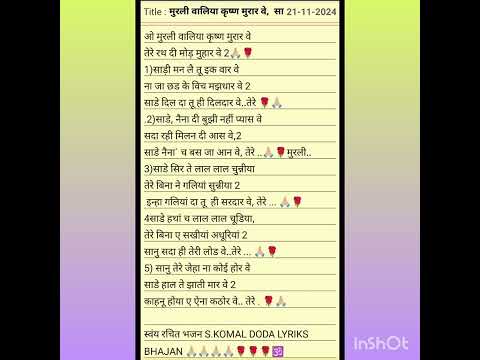 Title : मुरली वालिया कृष्ण मुरार वे, सा 21-11-2024
ओ मुरली वालिया कृष्ण मुरार वे
तेरे रथ दी मोड़ मुहार वे 2🙏🏼🌹
1)साड़ी मन लै तू इक वार वे
ना जा छड के विच मझधार वे 2
साडे दिल दा तू ही दिलदार वे..तेरे 🌹🙏🏼
.2)साडे, नैना दी बुझी नहीं प्यास वे
सदा रही मिलन दी आस वे,2
साडे नैना` च बस जा आन वे, तेरे ..🙏🏼🌹मुरली..
3)साडे सिर ते लाल लाल चुन्नीया
तेरे बिना ने गलियां सुन्नीया 2
इन्हा गलियां दा तू ही सरदार वे, तेरे ... 🙏🏼🌹
4साडे हथां च लाल लाल चूडिया,
तेरे बिना ए सखीयां अधूरियां 2
सानु सदा ही तेरी लोड वे..तेरे ... 🙏🏼🌹
5) सानु तेरे जेहा ना कोई होर वे
साडे हाल ते झाती मार वे 2
काहनू होया ए ऐना कठोर वे.. तेरे . 🌹🙏🏼
स्वंय रचित भजन S.KOMAL DODA LYRIKS
BHAJAN 🙏🏼🙏🏼🙏🏼🙏🏼🌹🌹🌹🕉
InShOt